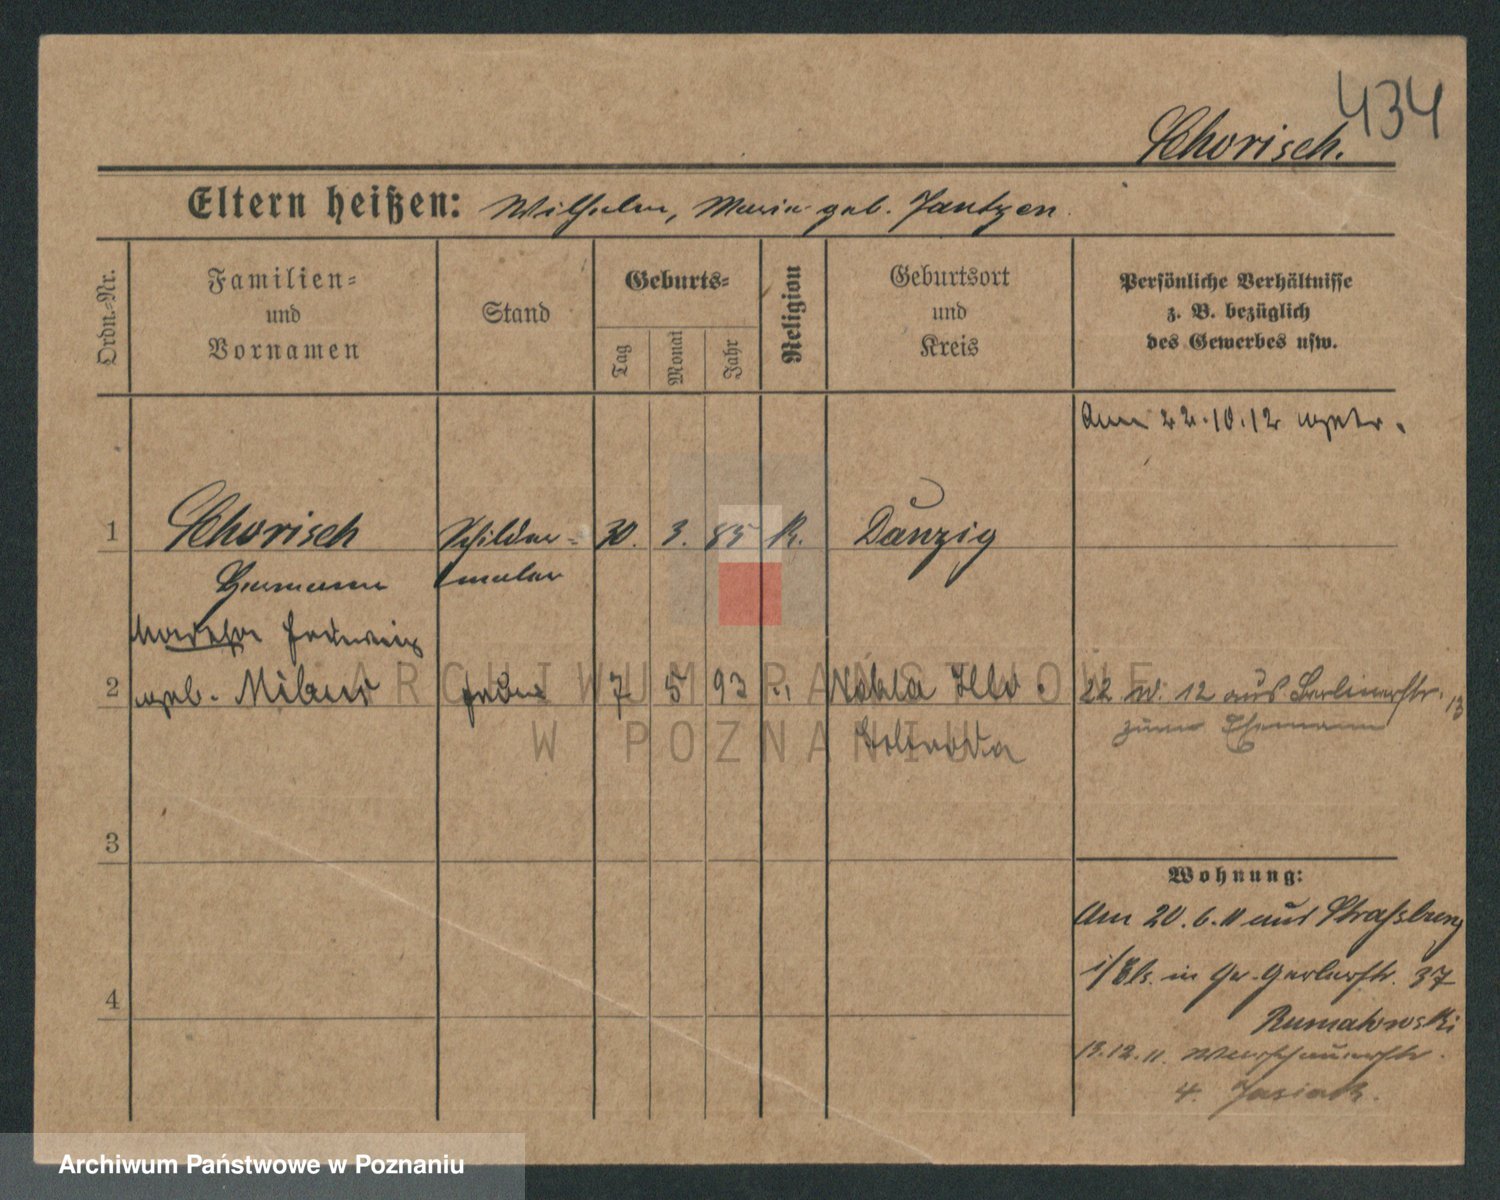 434
Schorisch.
Eltern heißen: Wilhelm, Maria geb. Jantzen.
Ordn.-Nr.
Familien-
und
Vornamen
Stand
Geburts-
Tag
Monat
Jahr
Religion
Geburtsort
und
Kreis
Persönliche Verhältnisse
z. B. bezüglich
des Gewerbes usw.
Am 22.10.12
1 Schorisch Schilder- 30. 3. 85 K. Danzig
Hermann maler
Hedwig
2 geb. 7 5 93 "
22 12 aus Berlinerstr. 13
zum Ehemann
3
Wohnung:
Am 20.6.11 aus Straßburg
i/Els. in Gr. Gerberstr. 37
4
13.12.11. Warschauerstr.
4. Jasiak.
ARCHIWUM PAŃSTWOWE
W POZNANIU
Archiwum Państwowe w Poznaniu